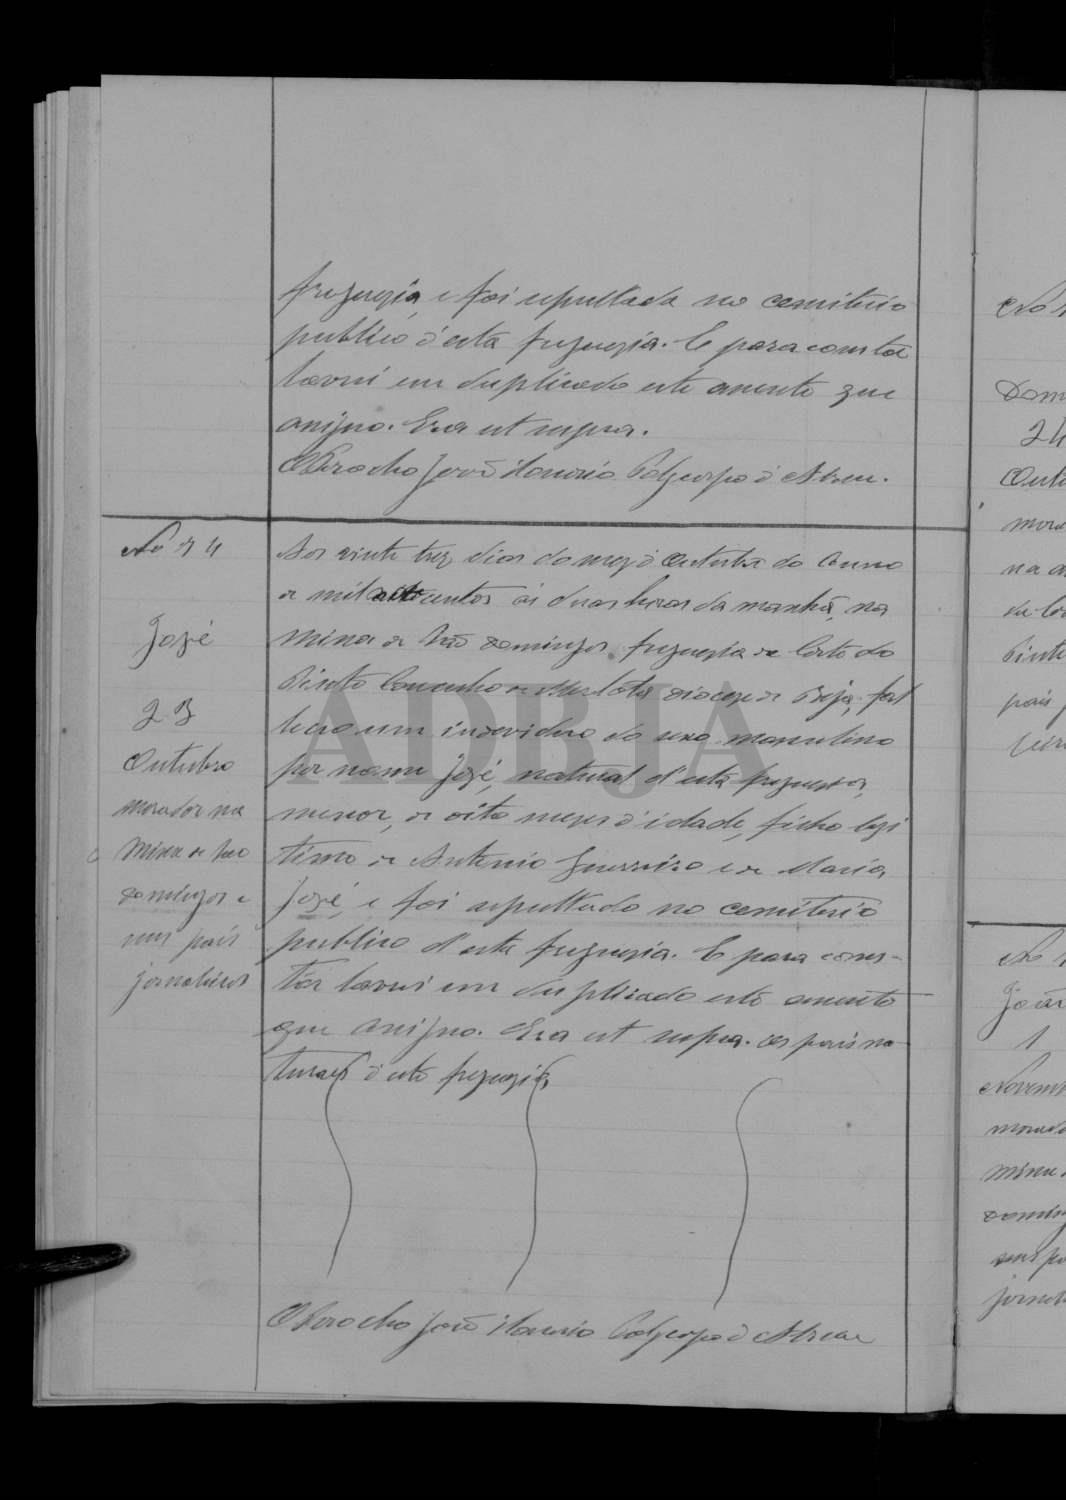 freguezia, e foi sepultada no cemiterio
publico d'esta freguezia. E para constar
lavrei em duplicado este assento que
assigno. Era ut supra.
O Parocho José Honorio Polycarpo d'Abreu.
No 74
José
23
Outubro
morador na
Mina de São
Domingos e
seus pais
jornaleiros
Aos vinte trez dias do mez d'Outubro do anno
de mil oitocentos ás duas horas da manhã, na
Mina de São Domingos, freguezia de Corte do
Pinto Concelho de Mertola diocese de Beja, fal
leceo um individuo do sexo masculino
por nome José, natural d'esta freguezia,
menor, de oito mezes d'idade, filho legi
timo de Antonio Guerreiro e de Maria
José, e foi sepultado no cemiterio
publico d'esta freguezia. E para cons-
tar lavrei em duplicado este assento
que assigno. Era ut supra. os pais na-
turaes d'esta freguezia
O Parocho José Honorio Polycarpo d'Abreu
ADBJA
Dom
24
Outu
mora
na
Pinto
pais
João
1
Novem
morado
mina
Doming
seus pa
jornal